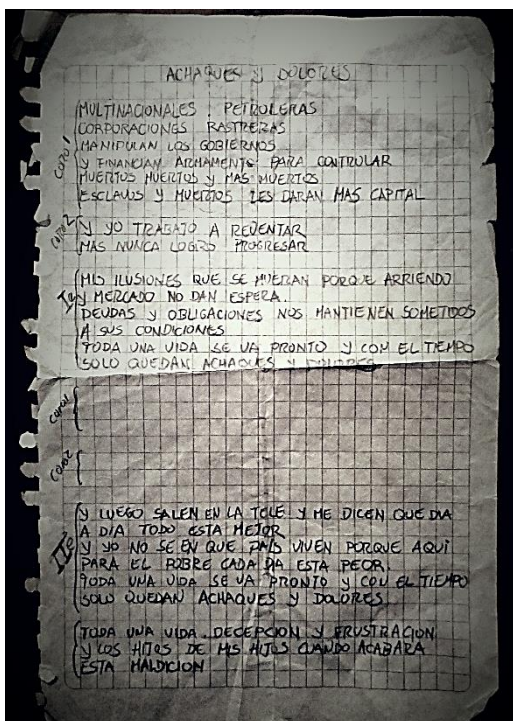 ACHAQUES Y DOLORES
CORO 1
MULTINACIONALES PETROLERAS
CORPORACIONES RASTRERAS
MANIPULAN LOS GOBIERNOS
Y FINANCIAN ARMAMENTO PARA CONTROLAR
MUERTOS MUERTOS Y MAS MUERTOS
ESCLAVOS Y MUERTOS LES DARAN MAS CAPITAL
CORO 2
Y YO TRABAJO A REVENTAR
MAS NUNCA LOGRO PROGRESAR
I e
MIS ILUSIONES QUE SE MUERAN PORQUE ARRIENDO
Y MERCADO NO DAN ESPERA.
DEUDAS Y OBLIGACIONES NOS MANTIENEN SOMETIDOS
A SUS CONDICIONES
TODA UNA VIDA SE VA PRONTO Y CON EL TIEMPO
SOLO QUEDAN ACHAQUES Y DOLORES
CORO 1
CORO 2
II e
Y LUEGO SALEN EN LA TELE Y ME DICEN QUE DIA
A DIA TODO ESTA MEJOR
Y YO NO SE EN QUE PAIS VIVEN PORQUE AQUI
PARA EL POBRE CADA DIA ESTA PEOR.
TODA UNA VIDA SE VA PRONTO Y CON EL TIEMPO
SOLO QUEDAN ACHAQUES Y DOLORES
TODA UNA VIDA. DECEPCION Y FRUSTRACION
Y LOS HIJOS DE MIS HIJOS CUANDO ACABARA
ESTA MALDICION